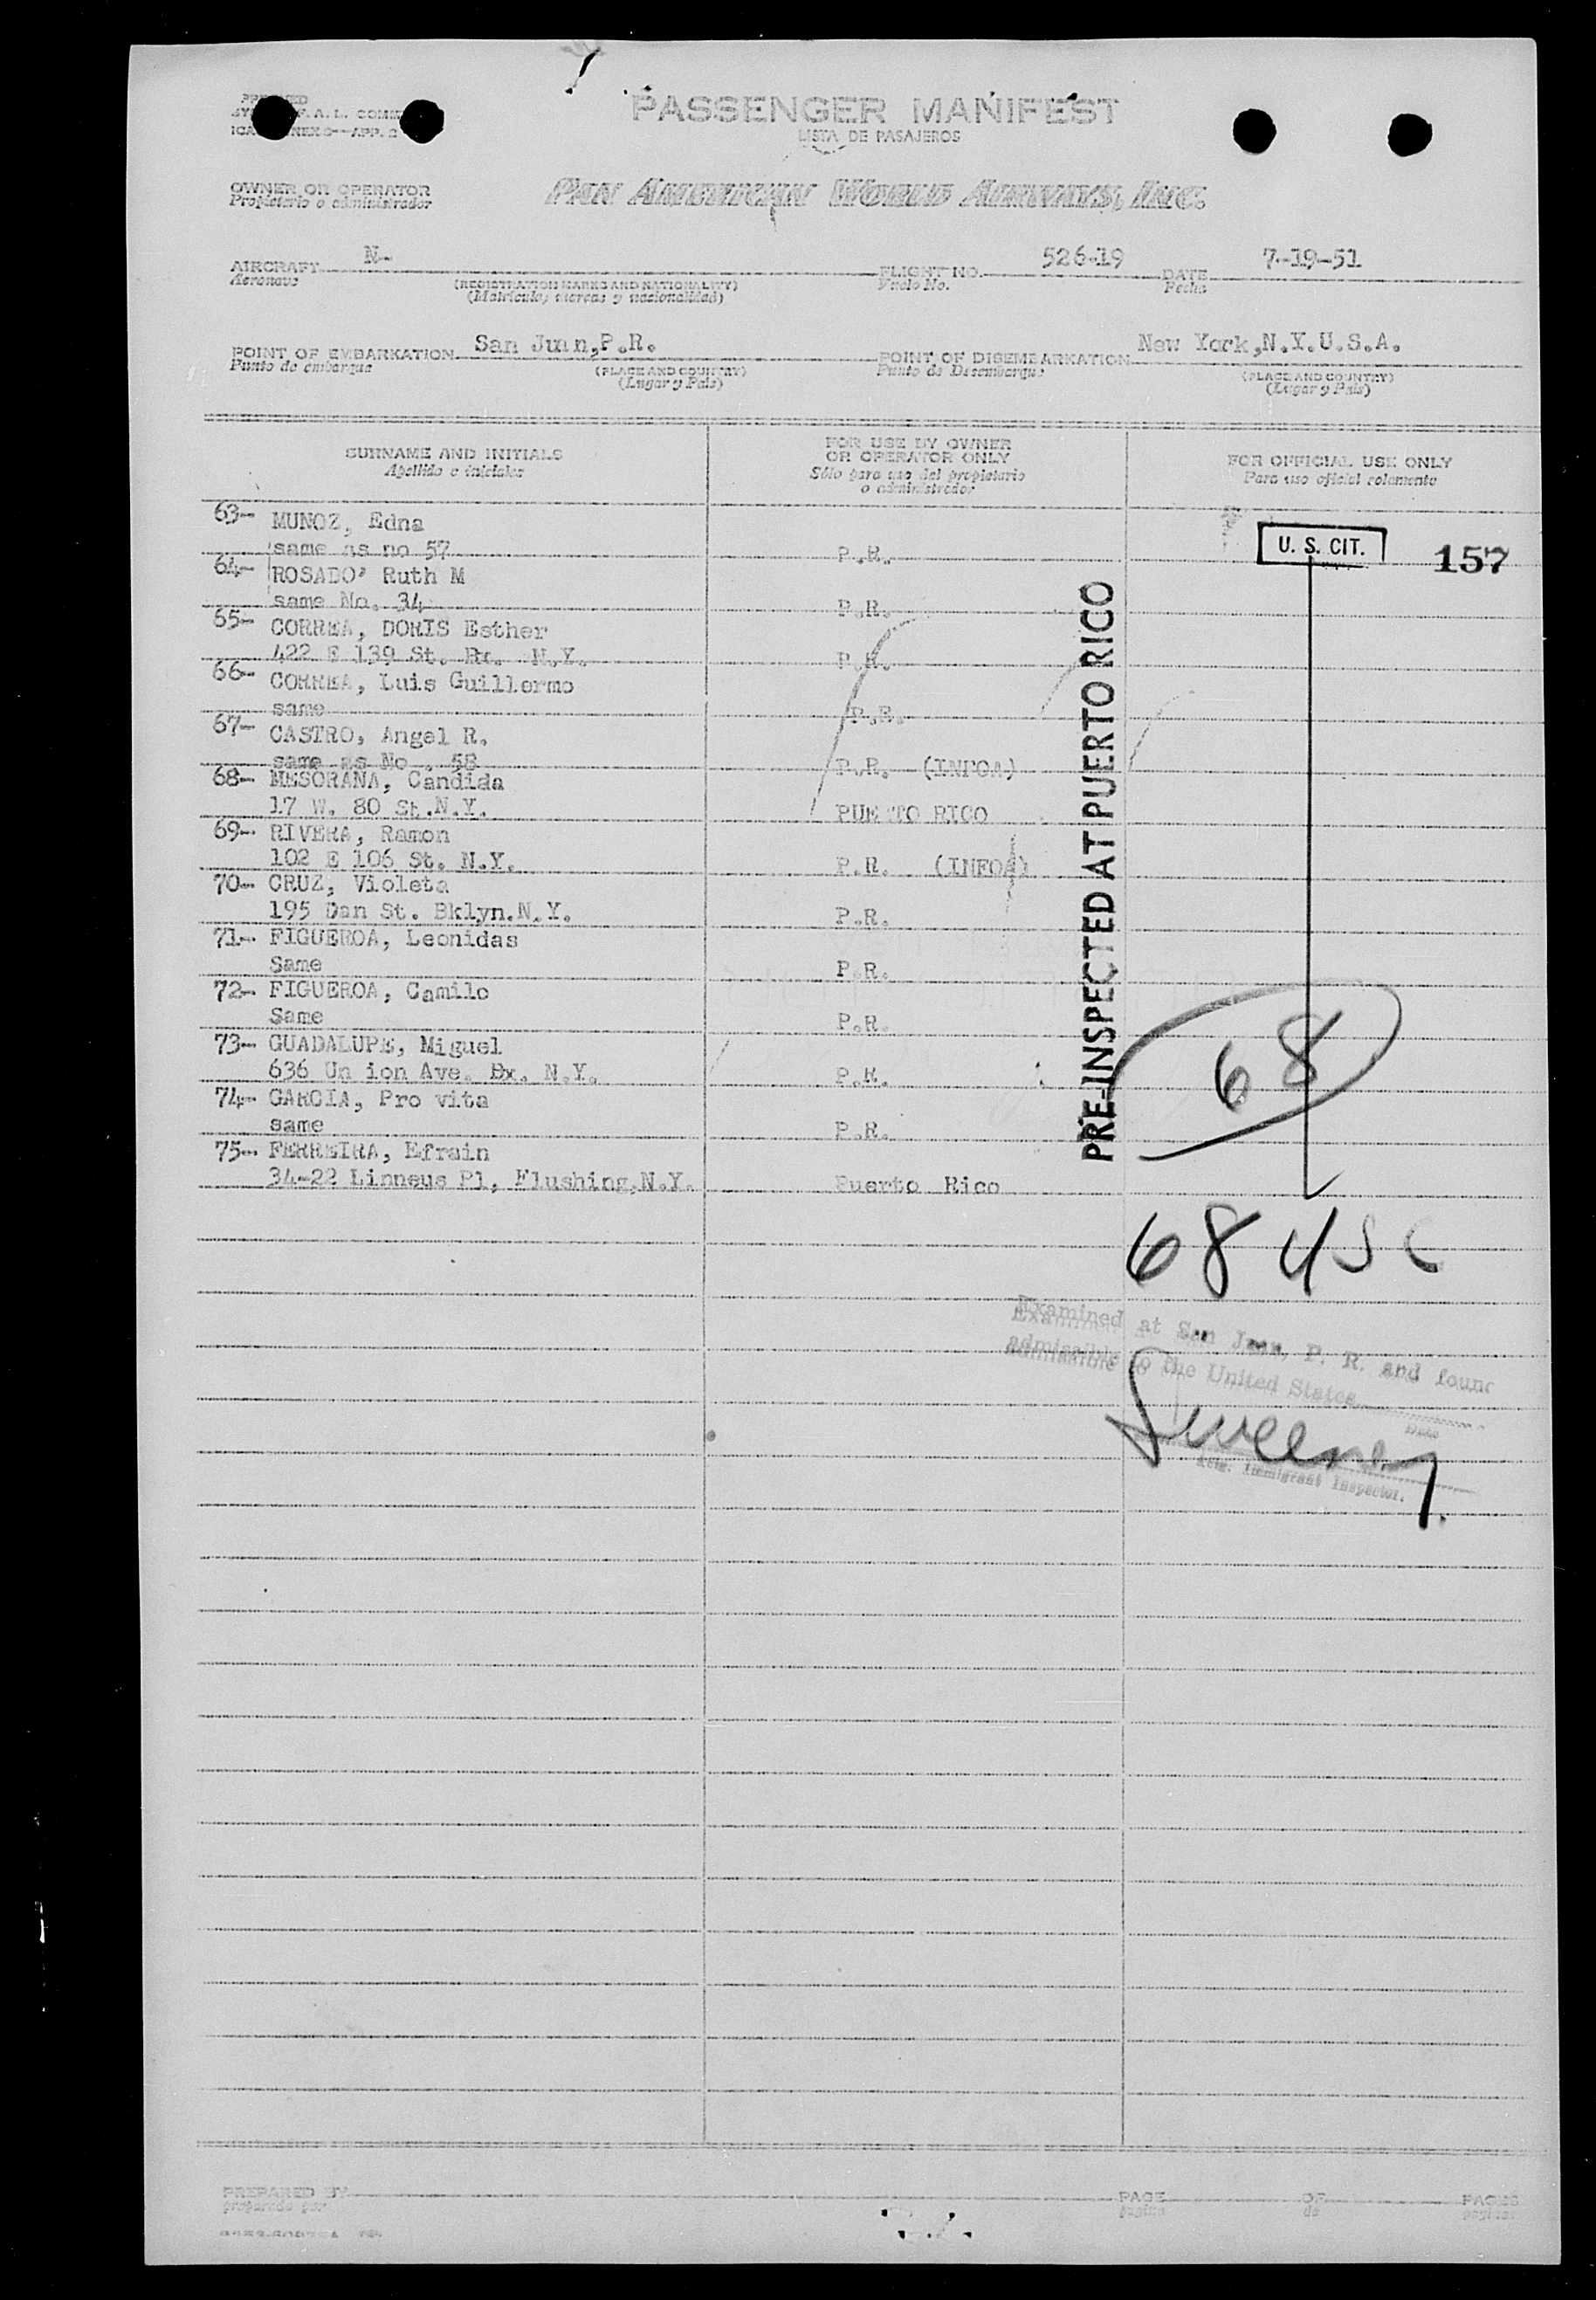 PASSENGER MANIFEST
LISTA DE PASAJEROS
OWNER OR OPERATOR
Propietario o administrador
PAN AMERICAN WORLD AIRWAYS, INC.
AIRCRAFT N-- FLIGHT NO. 526-19 DATE 7-19-51
Aeronave (REGISTRATION MARKS AND NATIONALITY) Vuelo No. Fecha
(Matricula, marcas y nacionalidad)
POINT OF EMBARKATION San Juan,P.R. POINT OF DISEMBARKATION New York,N.Y.U.S.A.
Punto de embarque (PLACE AND COUNTRY) Punto de Desembarque (PLACE AND COUNTRY)
(Lugar y Pais) (Lugar y Pais)
SURNAME AND INITIALS FOR USE BY OWNER OR OPERATOR ONLY FOR OFFICIAL USE ONLY
Apellido e iniciales Sólo para uso del propietario o administrador Para uso oficial solamente
63- MUNOZ, Edna
same as no 57 P.R. U. S. CIT. 157
64- ROSADO' Ruth M
same No. 34 P.R.
65- CORREA, DORIS Esther
422 E 139 St. Bx. N.Y. P.R.
66- CORREA, Luis Guillermo
same P.R.
67- CASTRO, Angel R.
same as No . 58 P.R. (INFOA)
68- MESORANA, Candida
17 W. 80 St.N.Y. PUERTO RICO
69- RIVERA, Ramon
102 E 106 St. N.Y. P.R. (INFOA)
70- CRUZ, Violeta
195 Dan St. Bklyn.N.Y. P.R.
71- FIGUEROA, Leonidas
Same P.R.
72- FIGUEROA, Camilo
Same P.R.
73- GUADALUPE, Miguel
636 Un ion Ave. Bx. N.Y. P.R.
74- GARCIA, Pro vita
same P.R.
75- FERREIRA, Efrain
34-22 Linneus Pl, Flushing,N.Y. Puerto Rico
PRE-INSPECTED AT PUERTO RICO
68
68 USC
Examined at San Juan, P. R. and found
admissible to the United States
Date
Sweeney
Immigrant Inspector.
PREPARED BY PAGE OF PAGES
preparado por pagina de paginas